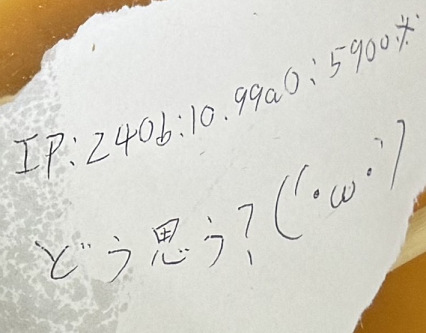 IP:240b:10.99a0:5900※
どう思う?(´・ω・`)